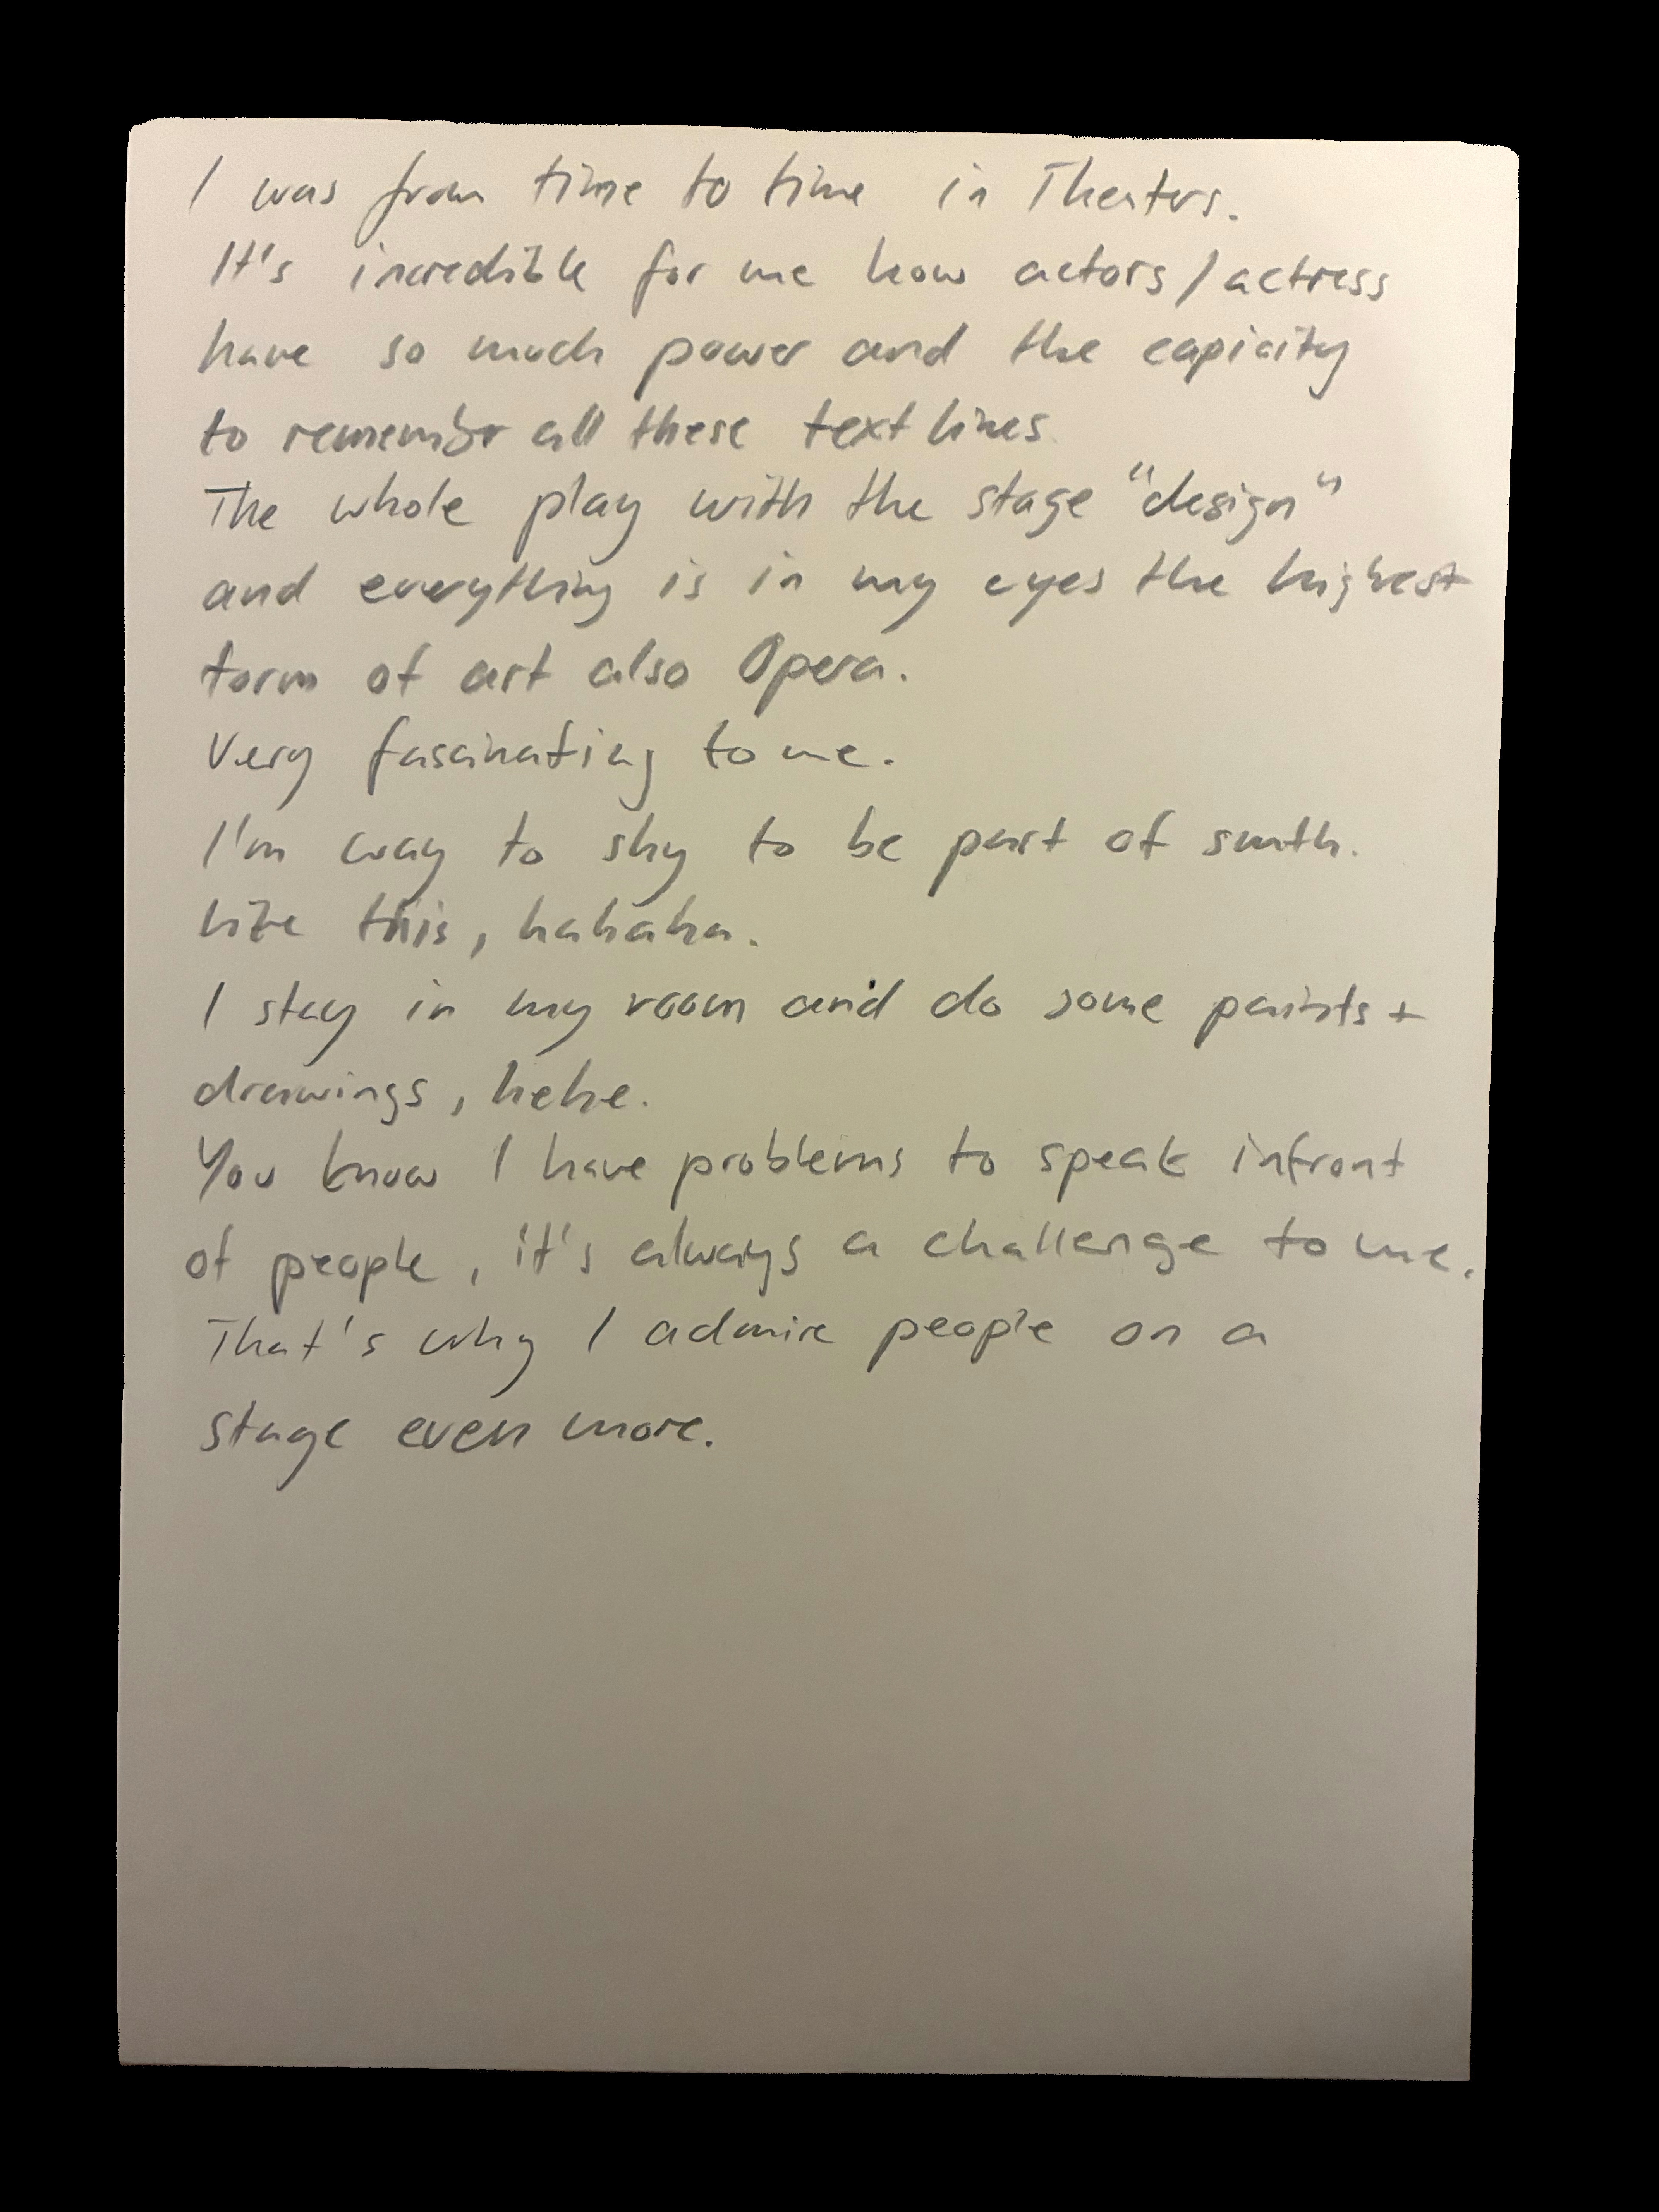 I was from time to time in Theaters.
It's incredible for me how actors/actress
have so much power and the capicity
to remember all these text lines.
The whole play with the stage "design"
and everything is in my eyes the highest
form of art also Opera.
Very fascinating to me.
I'm way to shy to be part of smth.
like this, hahaha.
I stay in my room and do some paints +
drawings, hehe.
You know I have problems to speak infront
of people, it's always a challenge to me.
That's why I admire people on a
stage even more.